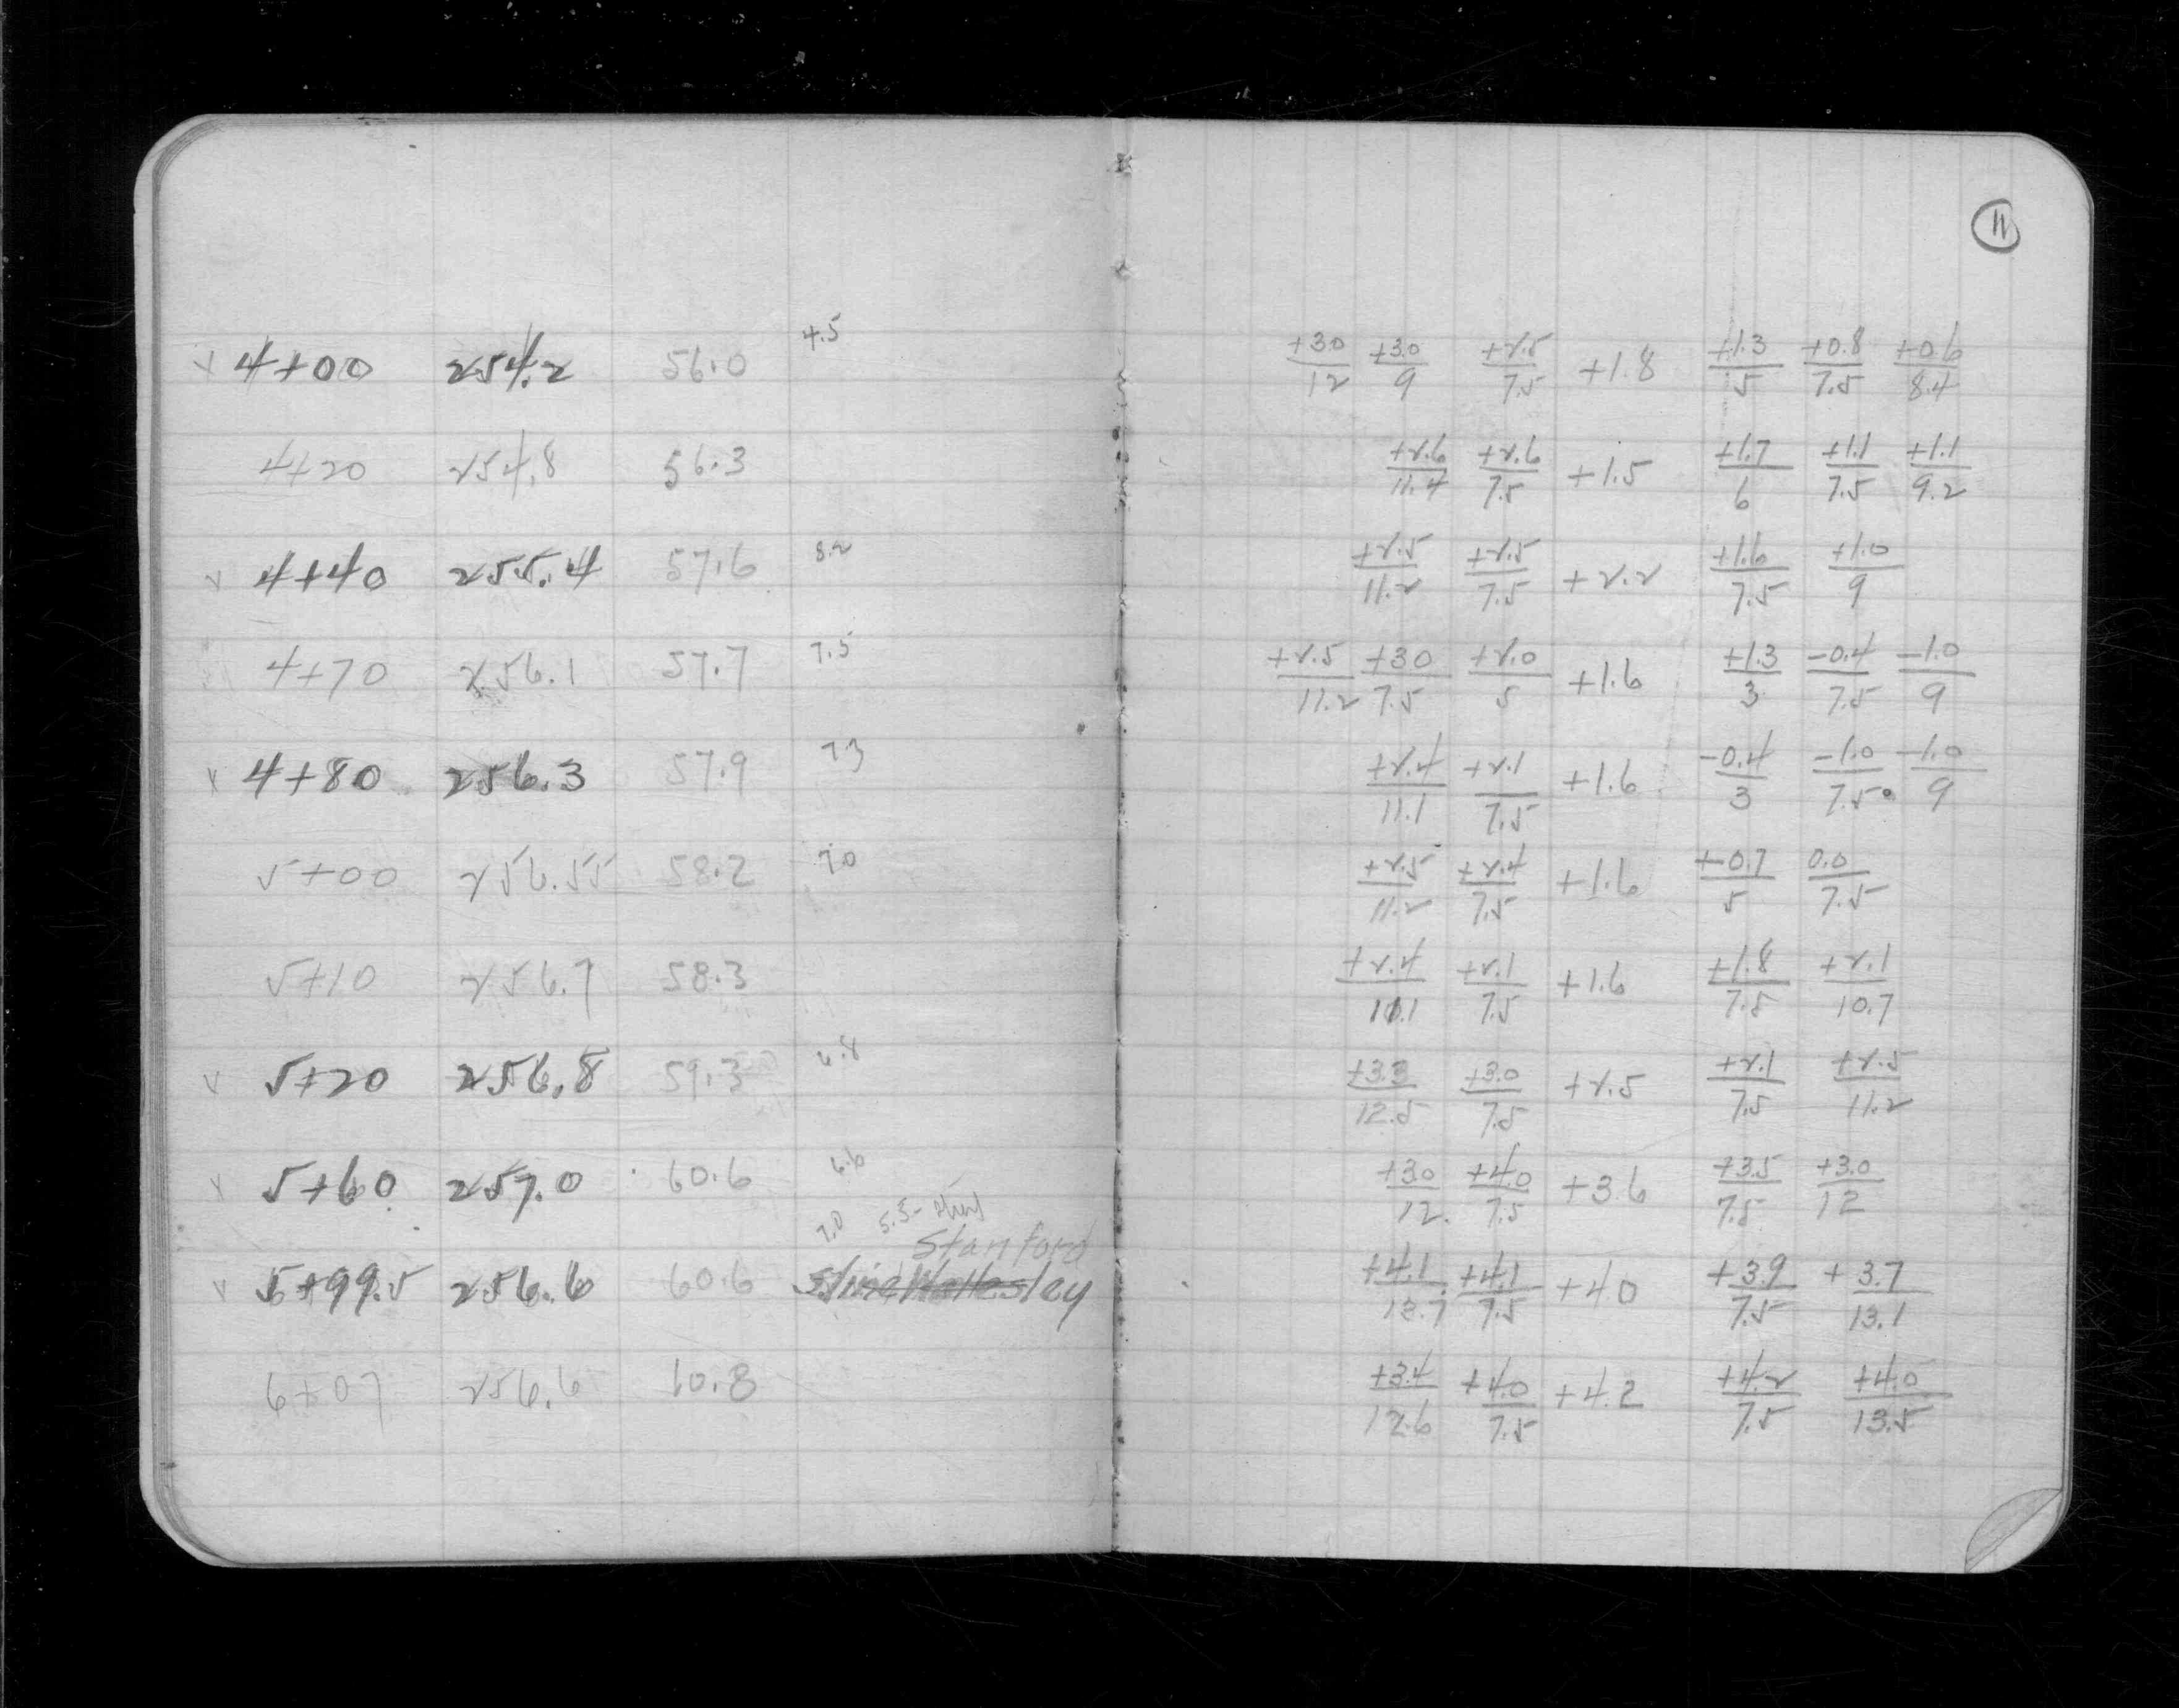 11
4+00 254.2 56.0 4.5 +3.0/12 +3.0/9 +2.5/7.5 +1.8 +1.3/5 +0.8/7.5 +0.6/8.4
4+20 254.8 56.3 +2.6/11.4 +2.6/7.5 +1.5 +1.7/6 +1.1/7.5 +1.1/9.2
4+40 255.4 57.6 8.2 +2.5/11.2 +2.5/7.5 +2.2 +1.6/7.5 +1.0/9
4+70 256.1 57.7 7.5 +2.5/11.2 +3.0/7.5 +2.0/5 +1.6 +1.3/3 -0.4/7.5 -1.0/9
4+80 256.3 57.9 7.3 +2.4/11.1 +2.1/7.5 +1.6 -0.4/3 -1.0/7.5 -1.0/9
5+00 256.55 58.2 7.0 +2.5/11.2 +2.4/7.5 +1.6 +0.7/5 0.0/7.5
5+10 256.7 58.3 +2.4/11.1 +2.1/7.5 +1.6 +1.8/7.5 +2.1/10.7
5+20 256.8 59.3 6.8 +3.3/12.5 +3.0/7.5 +2.5 +2.1/7.5 +2.5/11.2
5+60 257.0 60.6 6.6 +3.0/12. +4.0/7.5 +3.6 +3.5/7.5 +3.0/12
7.0 5.5-
Stanford
5+99.5 256.6 60.6 Wellesley +4.1/13.7 +4.1/7.5 +4.0 +3.9/7.5 +3.7/13.1
6+07 256.6 60.8 +3.4/12.6 +4.0/7.5 +4.2 +4.2/7.5 +4.0/13.5